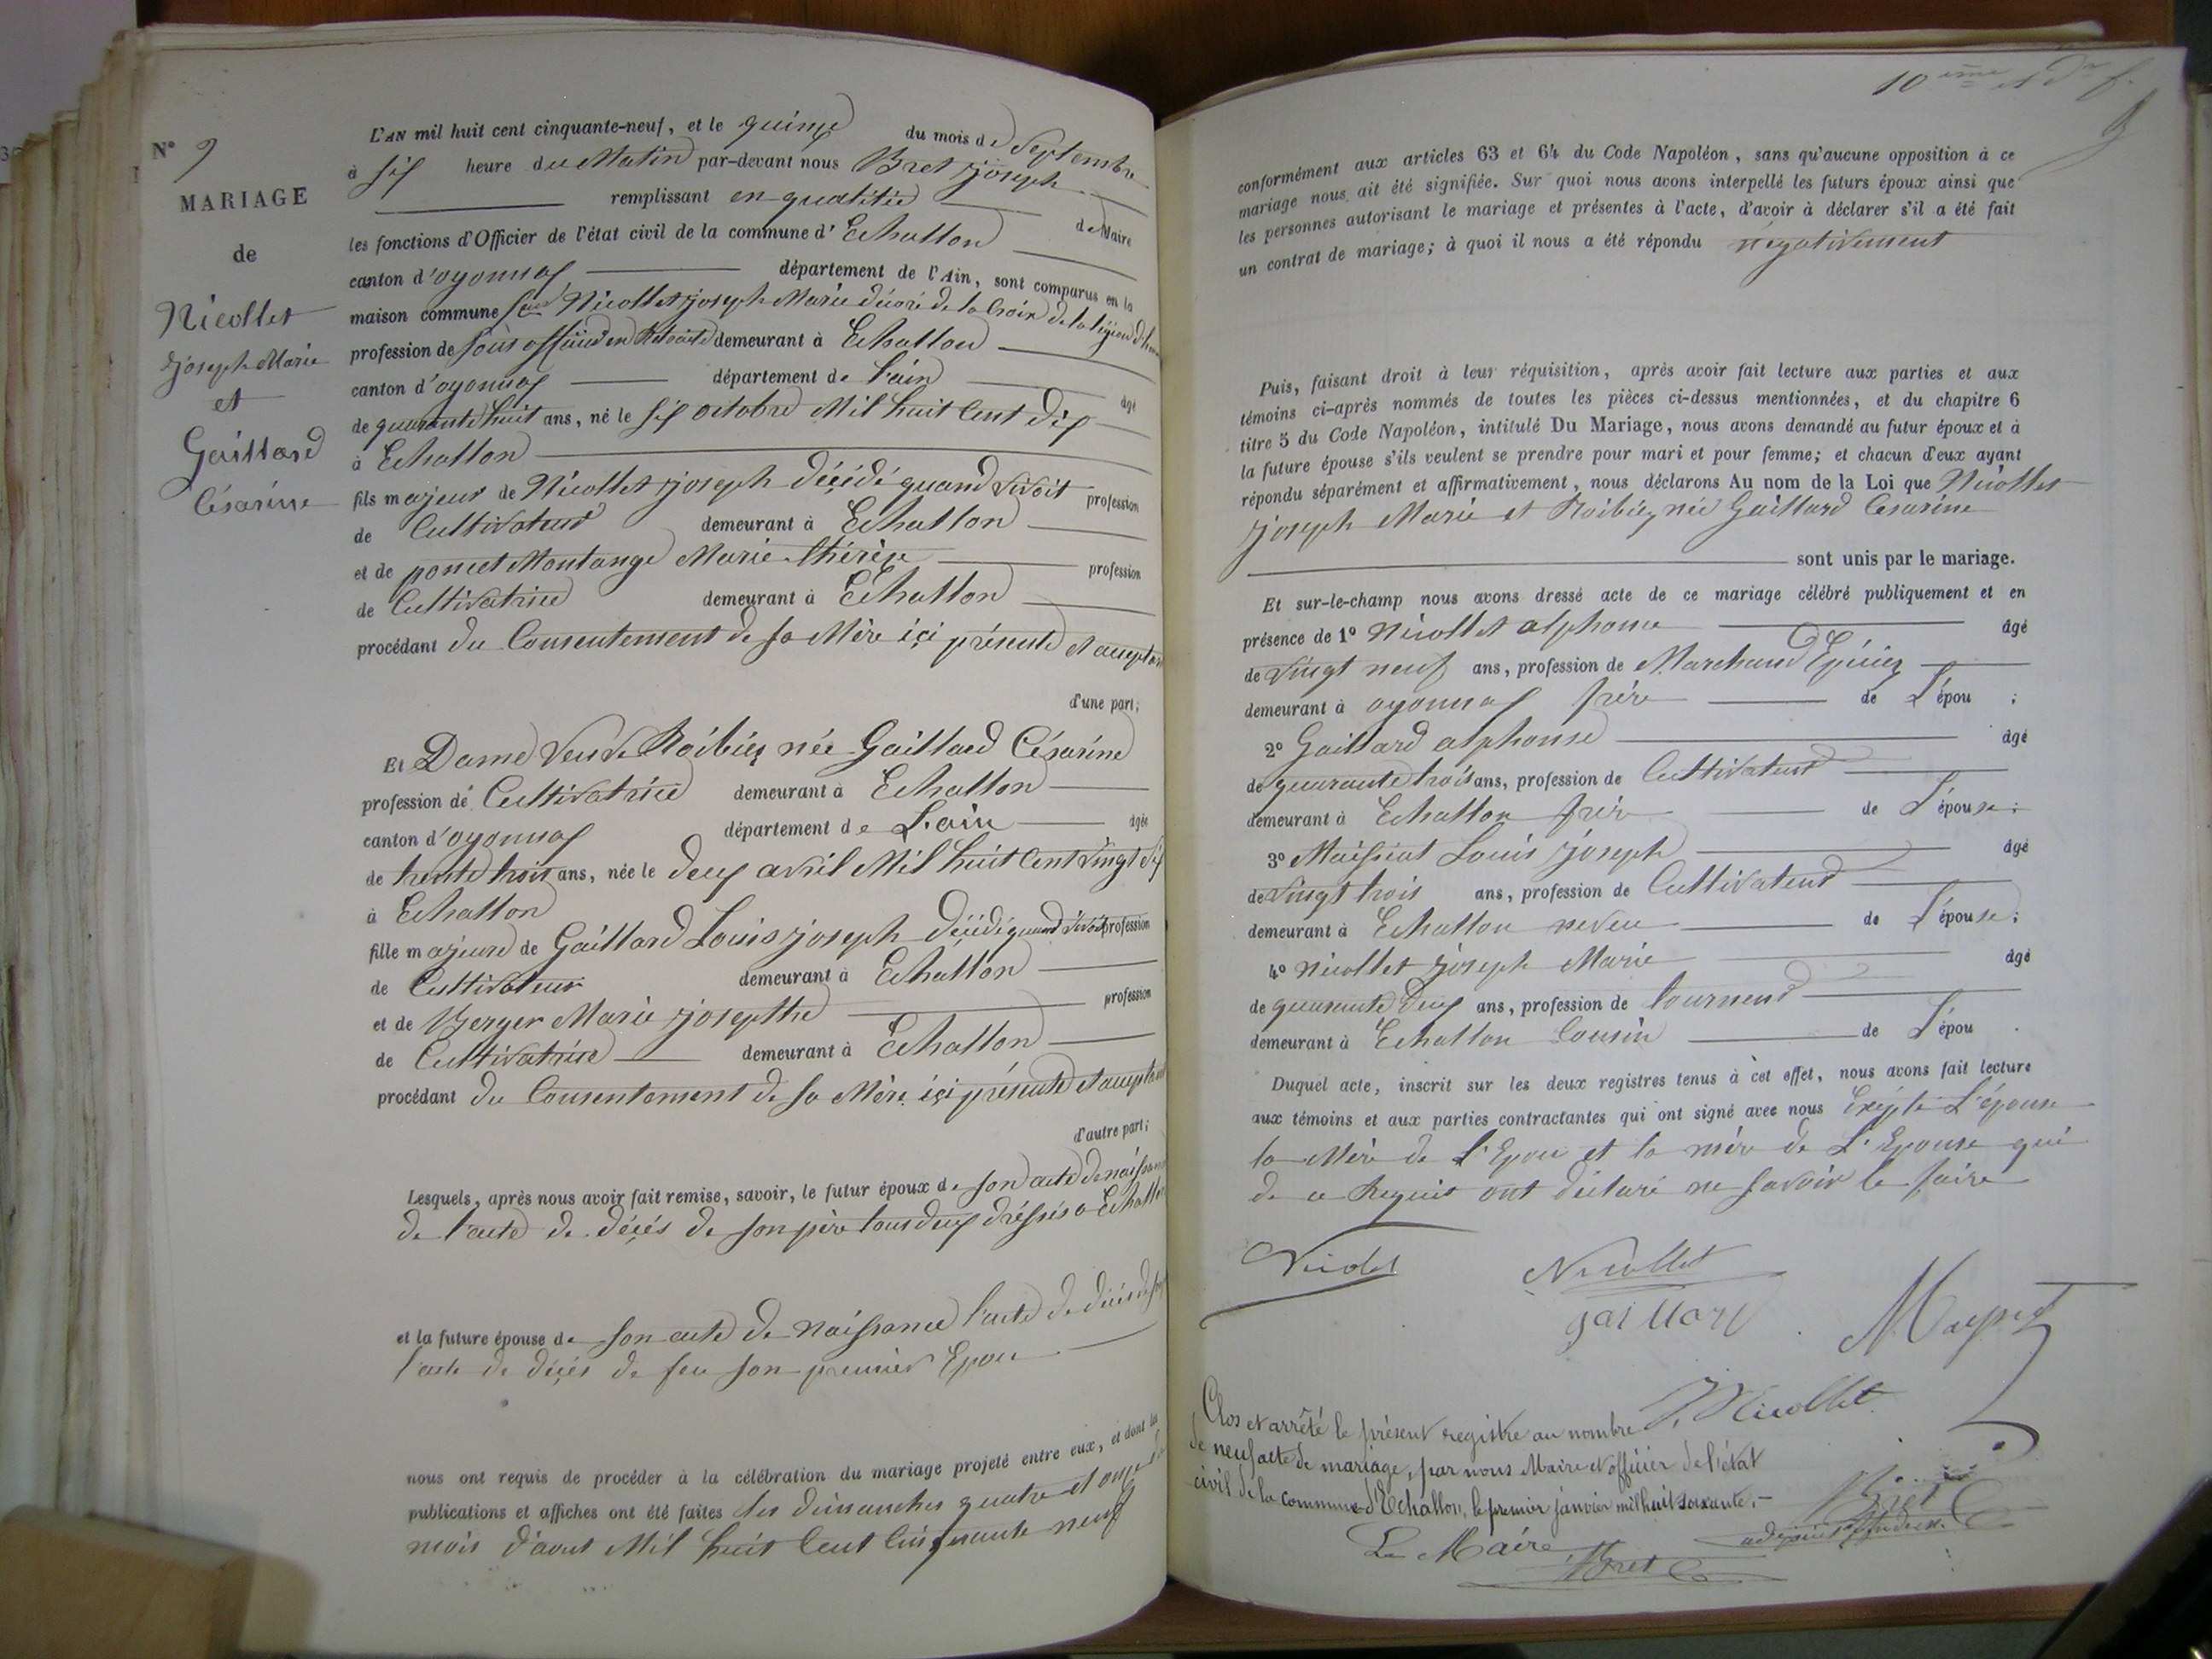 N° 9
MARIAGE
de
Nicollet
joseph Marie
et
Gaillard
Césarine
L'AN mil huit cent cinquante-neuf, et le quinze du mois de Septembre
à six heure du Matin par-devant nous Bret joseph
remplissant en qualitée de Maire
les fonctions d'Officier de l'état civil de la commune d'Echallon
canton d'oyonnax département de l'Ain, sont comparus en la
maison commune Nicollet joseph Marie décoré de la Croix de la légion d'hon
profession de sous officier en Retraite demeurant à Echallon
canton d'oyonnax département de l'ain âgé
de quarante huit ans, né le six octobre Mil huit Cent dix
à Echallon
fils majeur de Nicollet joseph décédé quand vivoit profession
de Cultivateur demeurant à Echallon
et de poncet Montange Marie thérèse profession
de Cultivatrice demeurant à Echallon
procédant du Consentement de sa Mère içi présente et acceptant
d'une part;
Et Dame Veuve Roibiez née Gaillard Césarine
profession de Cultivatrice demeurant à Echallon
canton d'oyonnax département de L'ain âgée
de trente trois ans, née le deux avril Mil huit Cent vingt six
à Echallon
fille majeure de Gaillard Louis joseph décédé quand vivoit profession
de Cultivateur demeurant à Echallon
et de Berger Marie josepthe profession
de Cultivatrice demeurant à Echallon
procédant du Consentement de sa Mère içi présente et acceptant
d'autre part;
Lesquels, après nous avoir fait remise, savoir, le futur époux de son acte de naissance
de l'acte de décés de son père tous deux dréssés a Echallon
et la future épouse de son acte de Naissance l'acte de décés de son
l'acte de décés de feu son premier Epou
nous ont requis de procéder à la célébration du mariage projeté entre eux, et dont les
publications et affiches ont été faites les dimanches quatre et onze
mois d'aout Mil huit Cent Cinquante neuf
10 eme et der f.
conformément aux articles 63 et 64 du Code Napoléon, sans qu'aucune opposition à ce
mariage nous ait été signifiée. Sur quoi nous avons interpellé les futurs époux ainsi que
les personnes autorisant le mariage et présentes à l'acte, d'avoir à déclarer s'il a été fait
un contrat de mariage; à quoi il nous a été répondu négativement
Puis, faisant droit à leur réquisition, après avoir fait lecture aux parties et aux
témoins ci-après nommés de toutes les pièces ci-dessus mentionnées, et du chapitre 6
titre 5 du Code Napoléon, intitulé Du Mariage, nous avons demandé au futur époux et à
la future épouse s'ils veulent se prendre pour mari et pour femme; et chacun d'eux ayant
répondu séparément et affirmativement, nous déclarons Au nom de la Loi que Nicollet
joseph Marie et Roibiez née Gaillard Césarine
sont unis par le mariage.
Et sur-le-champ nous avons dressé acte de ce mariage célébré publiquement et en
présence de 1° Nicollet alphonse âgé
de vingt neuf ans, profession de Marchand Epicier
demeurant à oyonnax frère de L'épou ;
2° Gaillard alphonse âgé
de quarante trois ans, profession de Cultivateur
demeurant à Echallon frère de L'épouse;
3° Maissiat Louis joseph âgé
de vingt trois ans, profession de Cultivateur
demeurant à Echallon neveu de L'épouse;
4° Nicollet joseph Marie âgé
de quarante deux ans, profession de tourneur
demeurant à Echallon Cousin de L'épou .
Duquel acte, inscrit sur les deux registres tenus à cet effet, nous avons fait lecture
aux témoins et aux parties contractantes qui ont signé avec nous Exépté L'épouse
la Mère de L'Epou et la mère de L'Epouse qui
de ce Requis ont déclaré ne savoir le faire
Nicolet
Nicollet
gaillard
J. Nicollet
Clos et arrêté le présent registre au nombre
de neuf acte de mariage, par nous Maire et officier de l'état
civil de la commune d'Echallon, le premier janvier mil huit soixante.
Bret
Le Maire
Bret